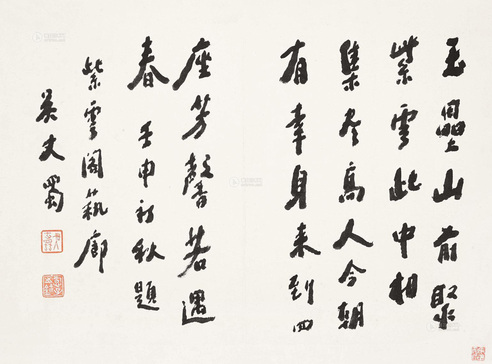 玉壘山前聚
紫雲此中相
集盡高人今朝
有幸身來到四
座芳馨若遇
春 壬申初秋題
紫雲閣藝廊
吳丈蜀